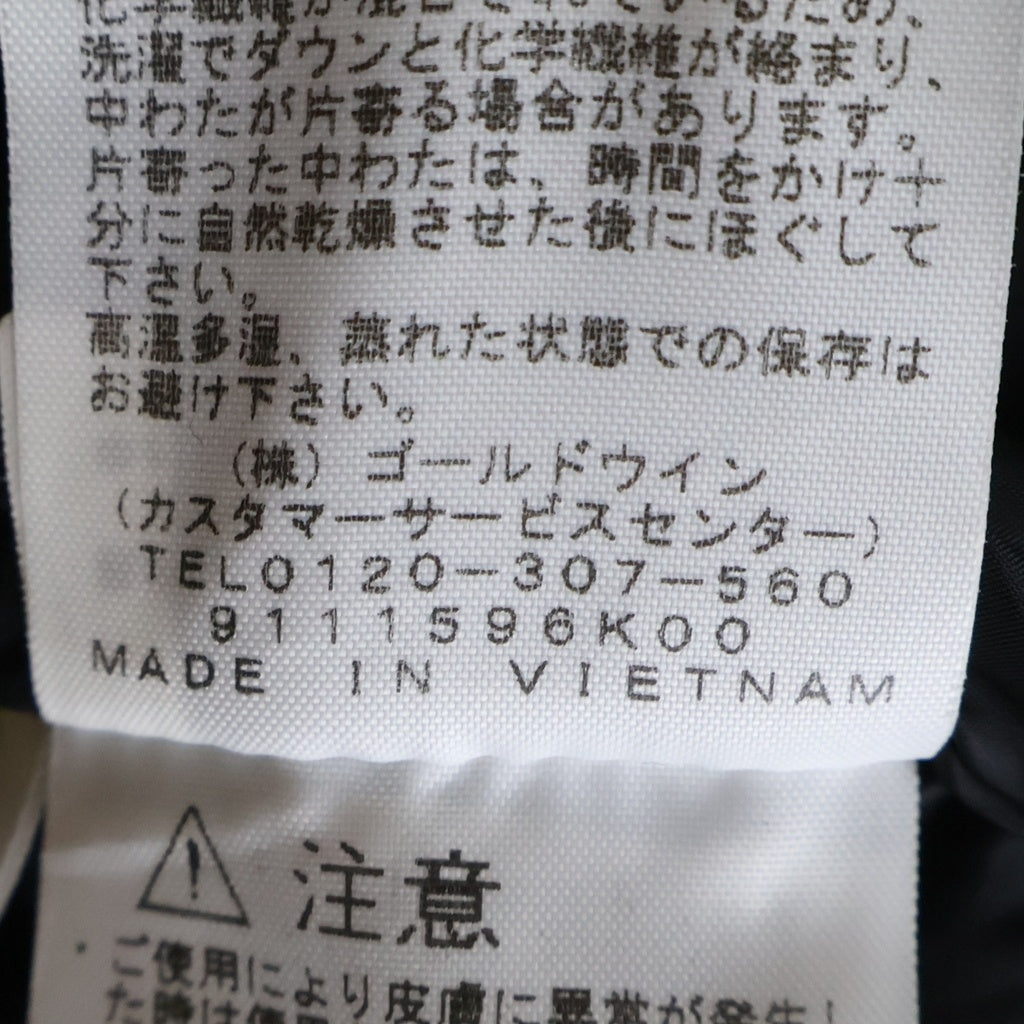 化学繊維が混合されているため、
洗濯でダウンと化学繊維が絡まり、
中わたが片寄る場合があります。
片寄った中わたは、時間をかけ十
分に自然乾燥させた後にほぐして
下さい。
高温多湿、蒸れた状態での保存は
お避け下さい。
(株) ゴールドウイン
(カスタマーサービスセンター)
TEL0120-307-560
9111596K00
MADE IN VIETNAM
注意
ご使用により皮膚に異常が発生し
た時は使用